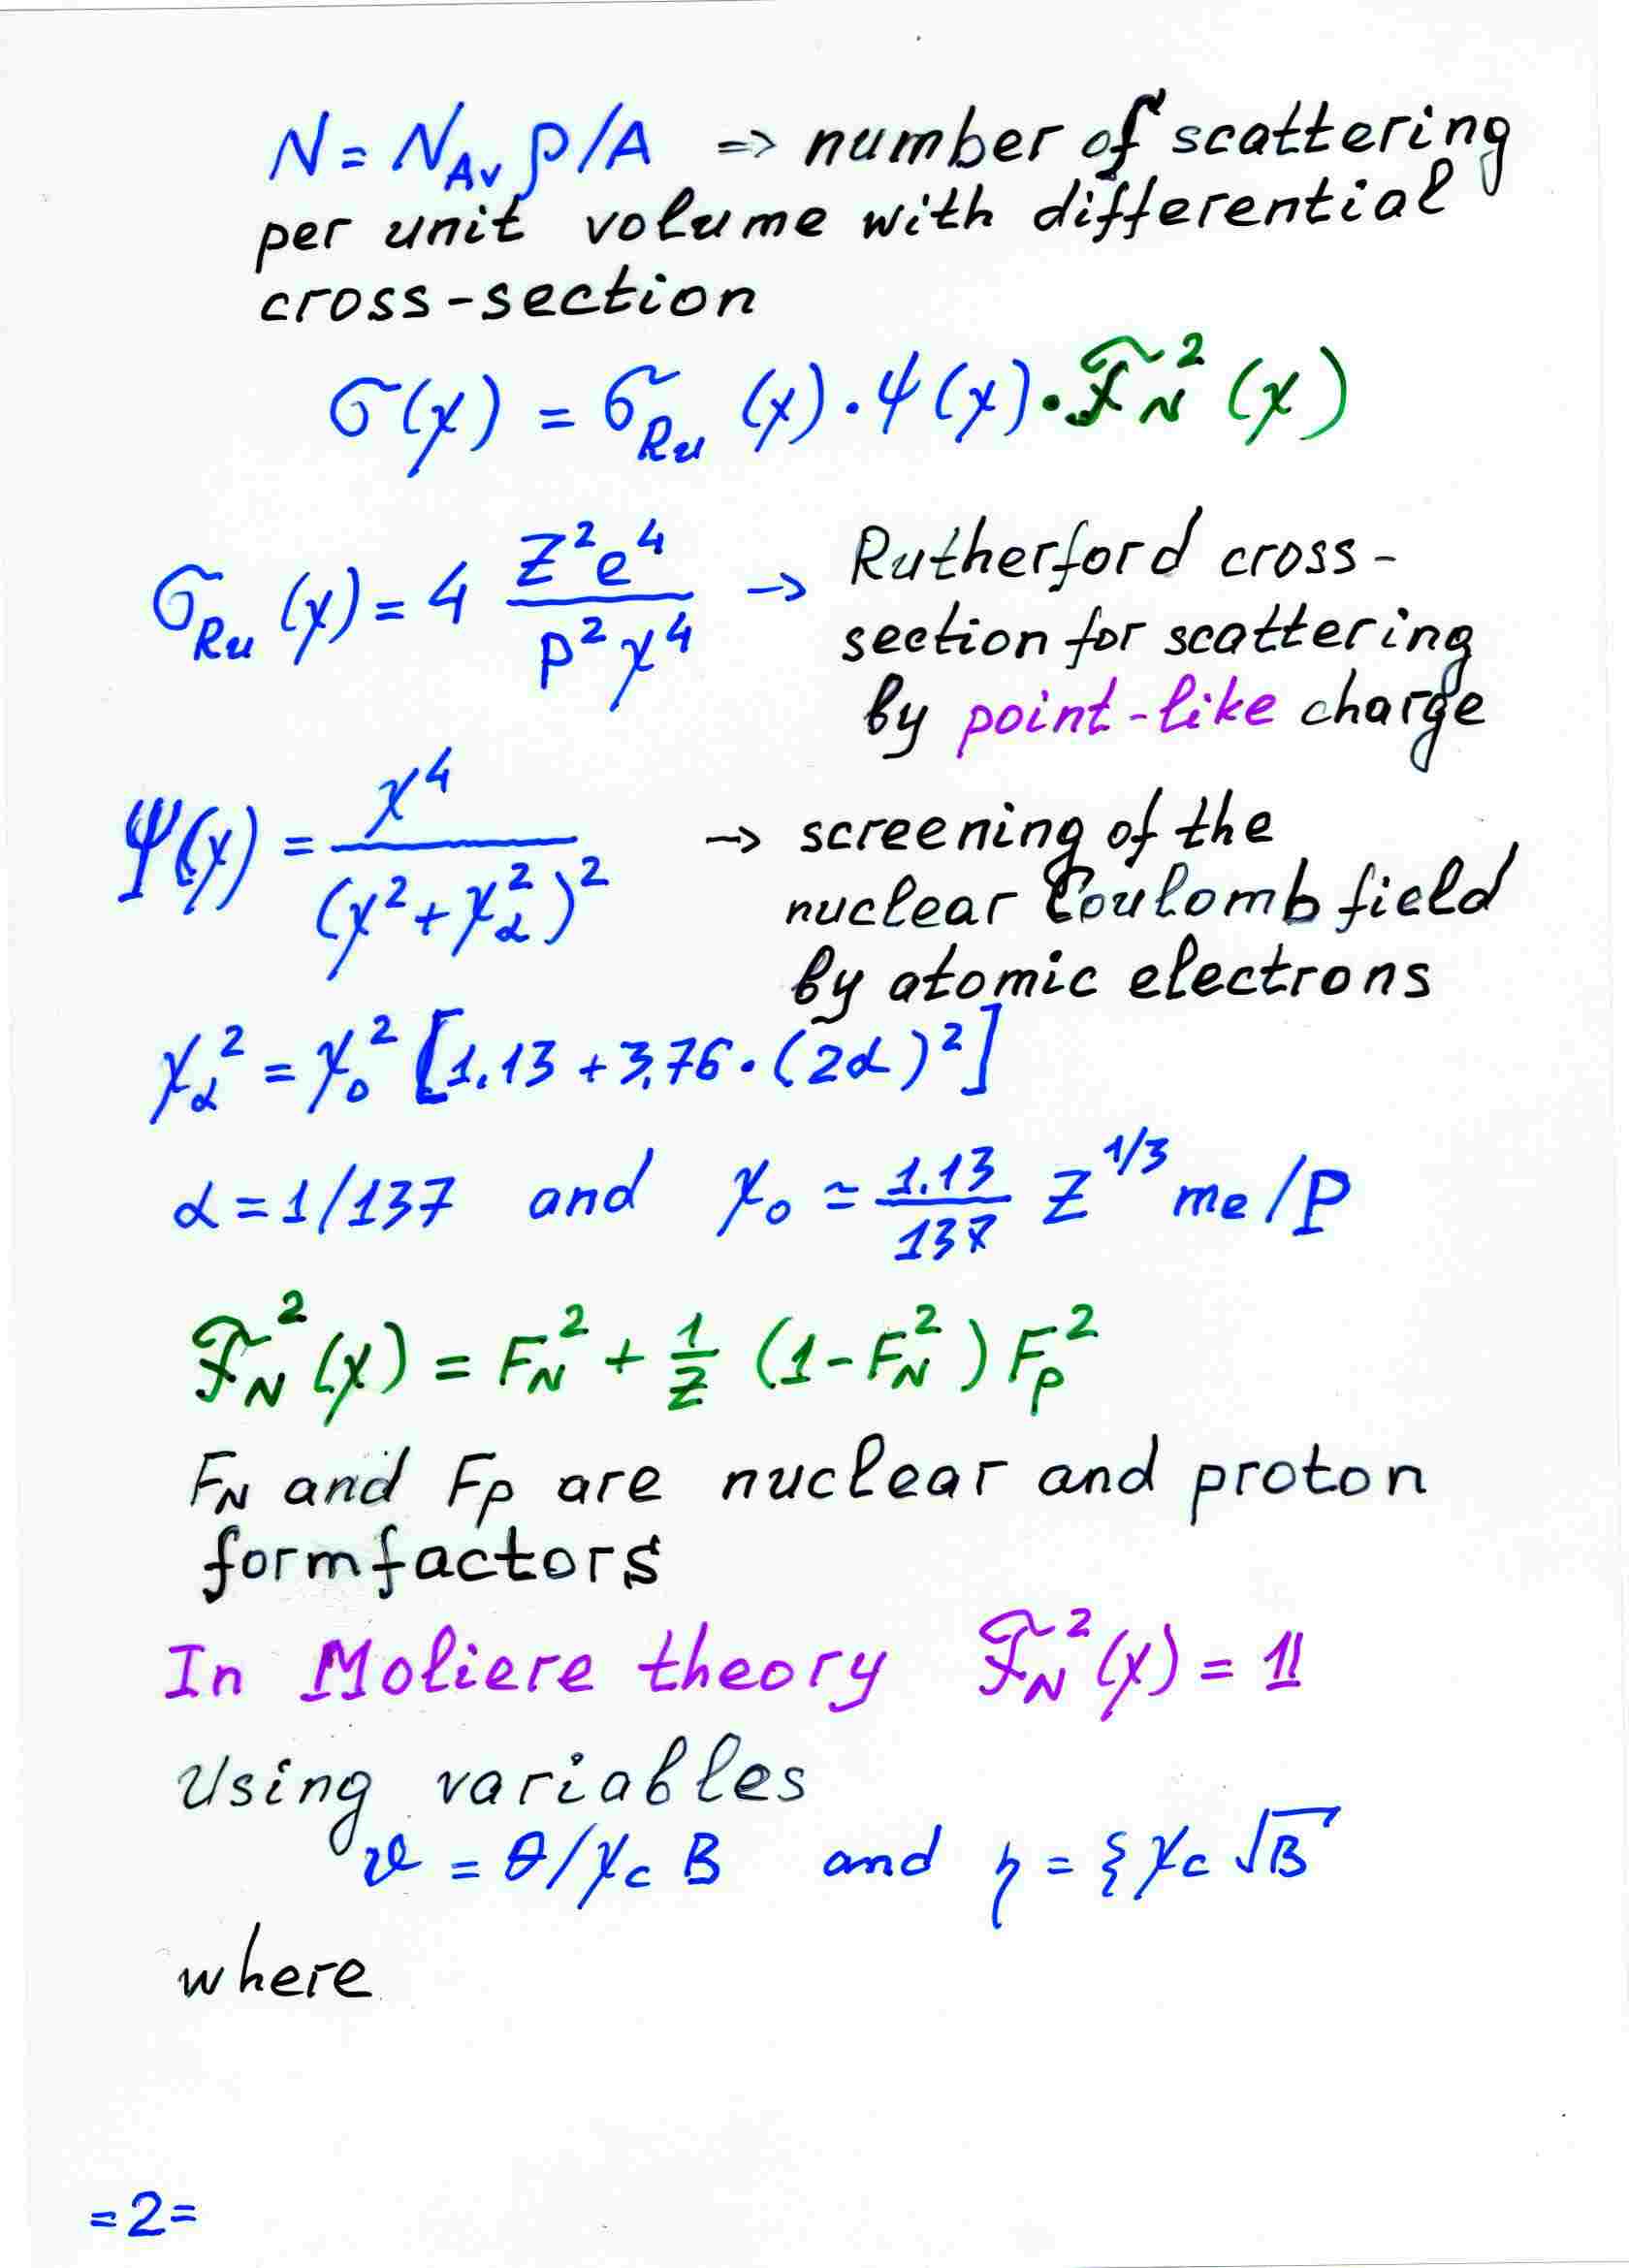 N = N_Av ρ/A => number of scattering
per unit volume with differential
cross-section
σ(χ) = σ_Ru (χ)·ψ(χ)·ℱ_N^2 (χ)
σ_Ru (χ) = 4 Z^2e^4 / p^2χ^4 → Rutherford cross-
section for scattering
by point-like charge
Ψ(χ) = χ^4 / (χ^2+χ_α^2)^2 → screening of the
nuclear Coulomb field
by atomic electrons
χ_α^2 = χ_0^2 [1.13 + 3.76·(2α)^2]
α = 1/137 and χ_0 ≃ 1.13/137 Z^1/3 me/P
ℱ_N^2 (χ) = F_N^2 + 1/Z (1-F_N^2) F_p^2
F_N and F_p are nuclear and proton
formfactors
In Moliere theory ℱ_N^2 (χ) = 1!
Using variables
ϑ = θ/χ_c B and η = ξ χ_c √B
where
=2=